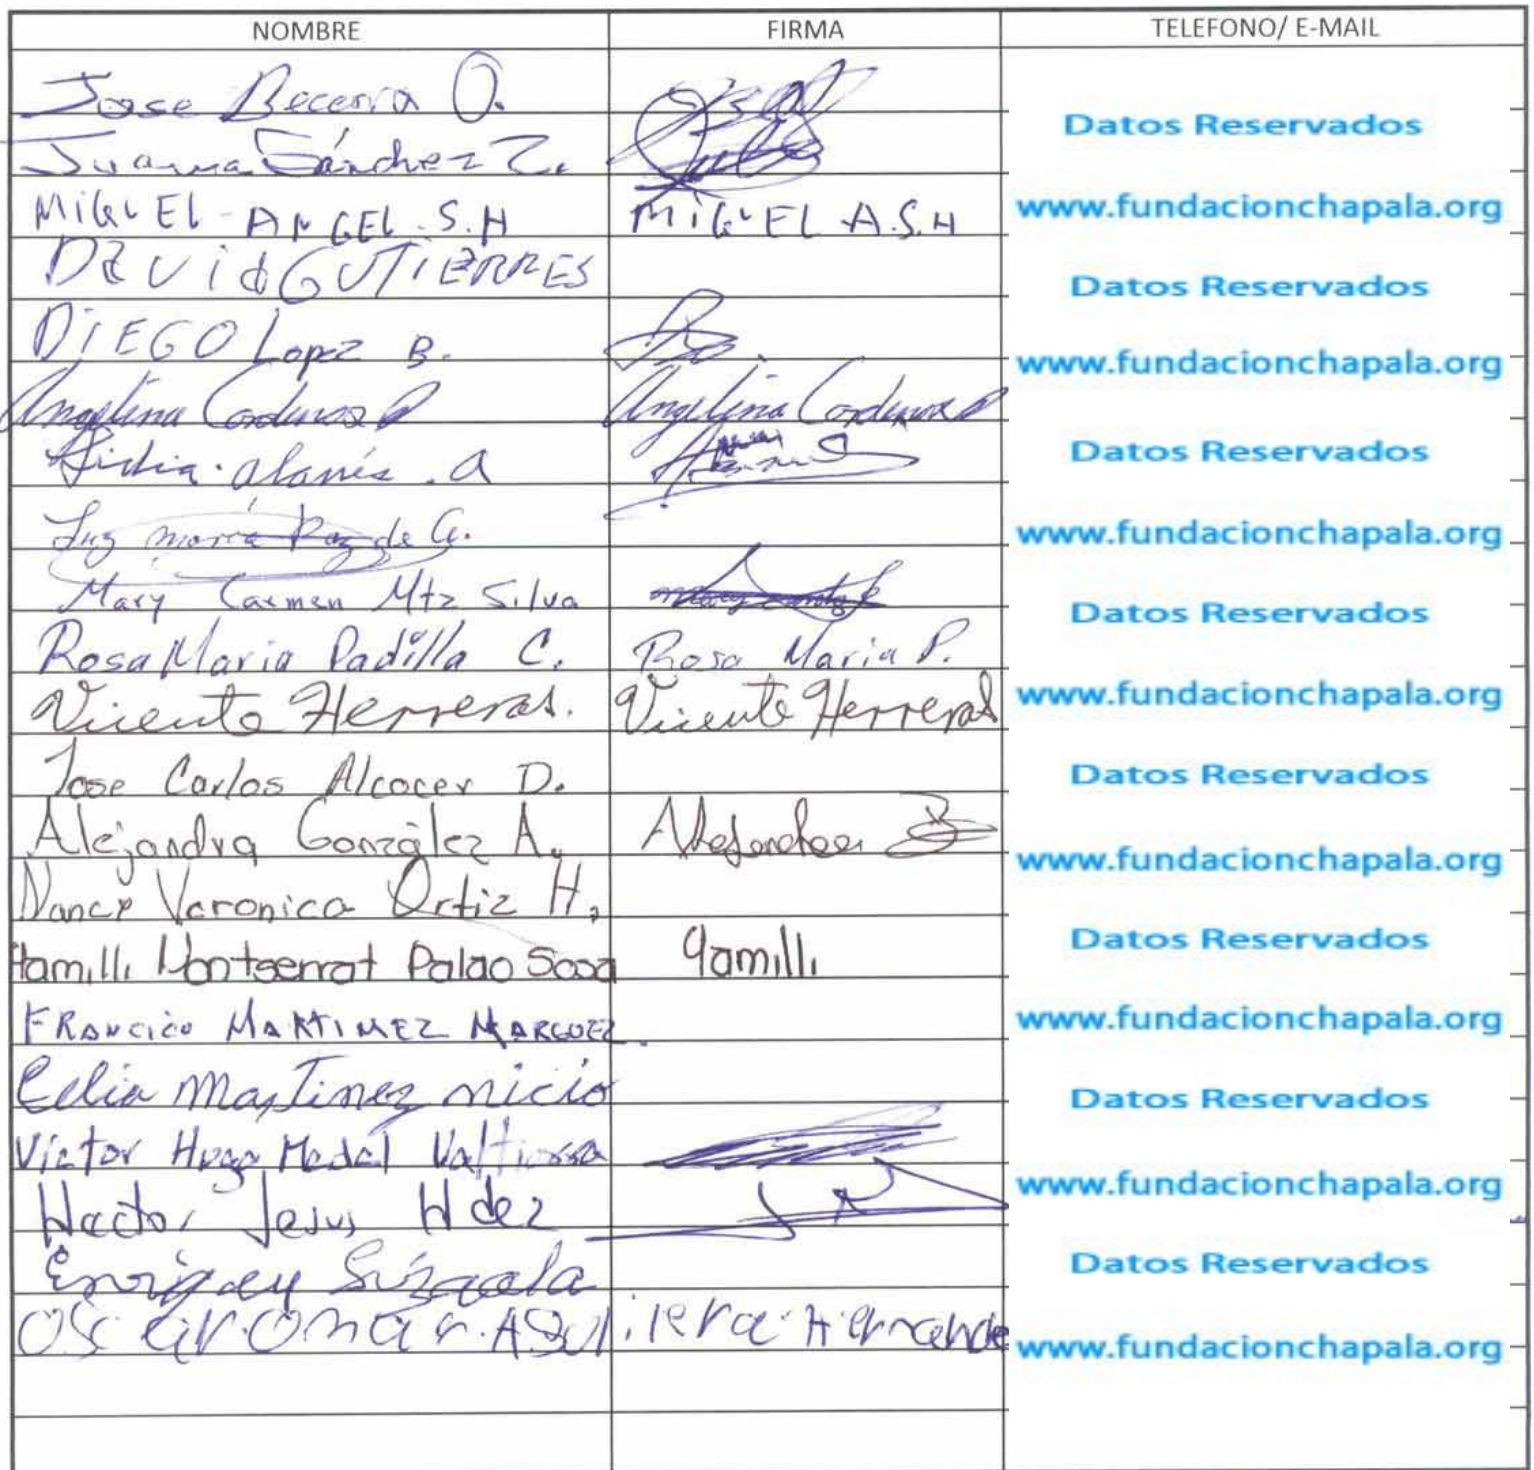 NOMBRE FIRMA TELEFONO/ E-MAIL
Jose Becerra O.
Datos Reservados
Juana Sánchez Z.
MIGUEL ANGEL. S. H MIGUEL A.S.H www.fundacionchapala.org
DEVId GUTIERRES
Datos Reservados
DIEGO Lopez B.
www.fundacionchapala.org
Angelina Cardenas Angelina Cardenas
Lidia. alanís. a Datos Reservados
Luz maria Paz de G. www.fundacionchapala.org
Mary Carmen Mtz Silva Datos Reservados
Rosa Maria Padilla C. Rosa Maria P.
Vicente Herreras. Vicente Herreras www.fundacionchapala.org
Jose Carlos Alcocer D. Datos Reservados
Alejandra González A. Alejandra www.fundacionchapala.org
Nancy Veronica Ortiz H.
Yamilli Montserrat Palao Sosa Yamilli Datos Reservados
FRANCICO MARTINEZ MARGUEZ. www.fundacionchapala.org
Celia Martinez nicio Datos Reservados
Victor Hugo Medel
www.fundacionchapala.org
Hector Jesus Hdez
Datos Reservados
OScar. Omar. AGUilera Hernande www.fundacionchapala.org